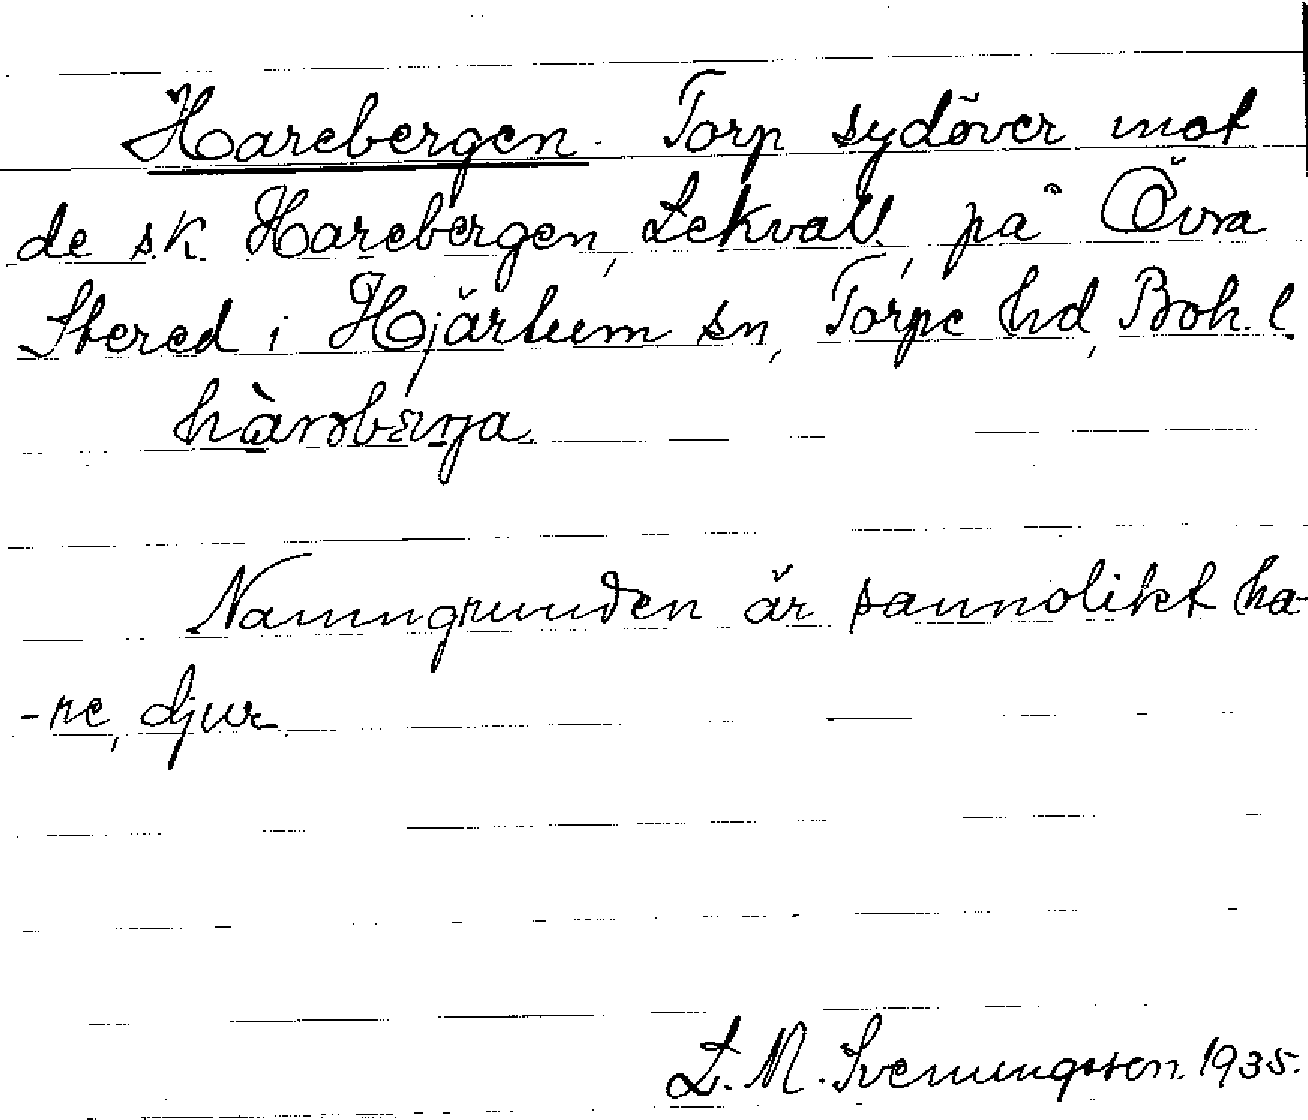 Harebergen. Torp sydöver mot
de s.k. Harebergen, Lekvall, på Övra
Stered i Hjärtum sn, Torpe hd, Boh. l.
Namngrunden är sannolikt ha-
-re, djur.
L. M. Svenungsson. 1935.